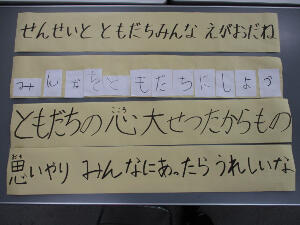 せんせいと ともだちみんな えがおだね
みんなをともだちにしよう
ともだちの心大せつたからもの
思いやり みんなにあったら うれしいな